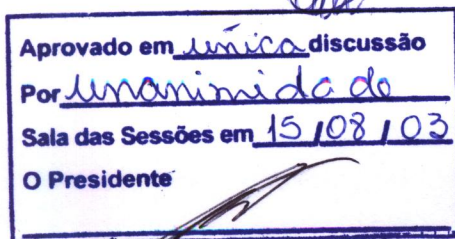 Aprovado em única discussão
Por unanimidade
Sala das Sessões em 15/08/03
O Presidente